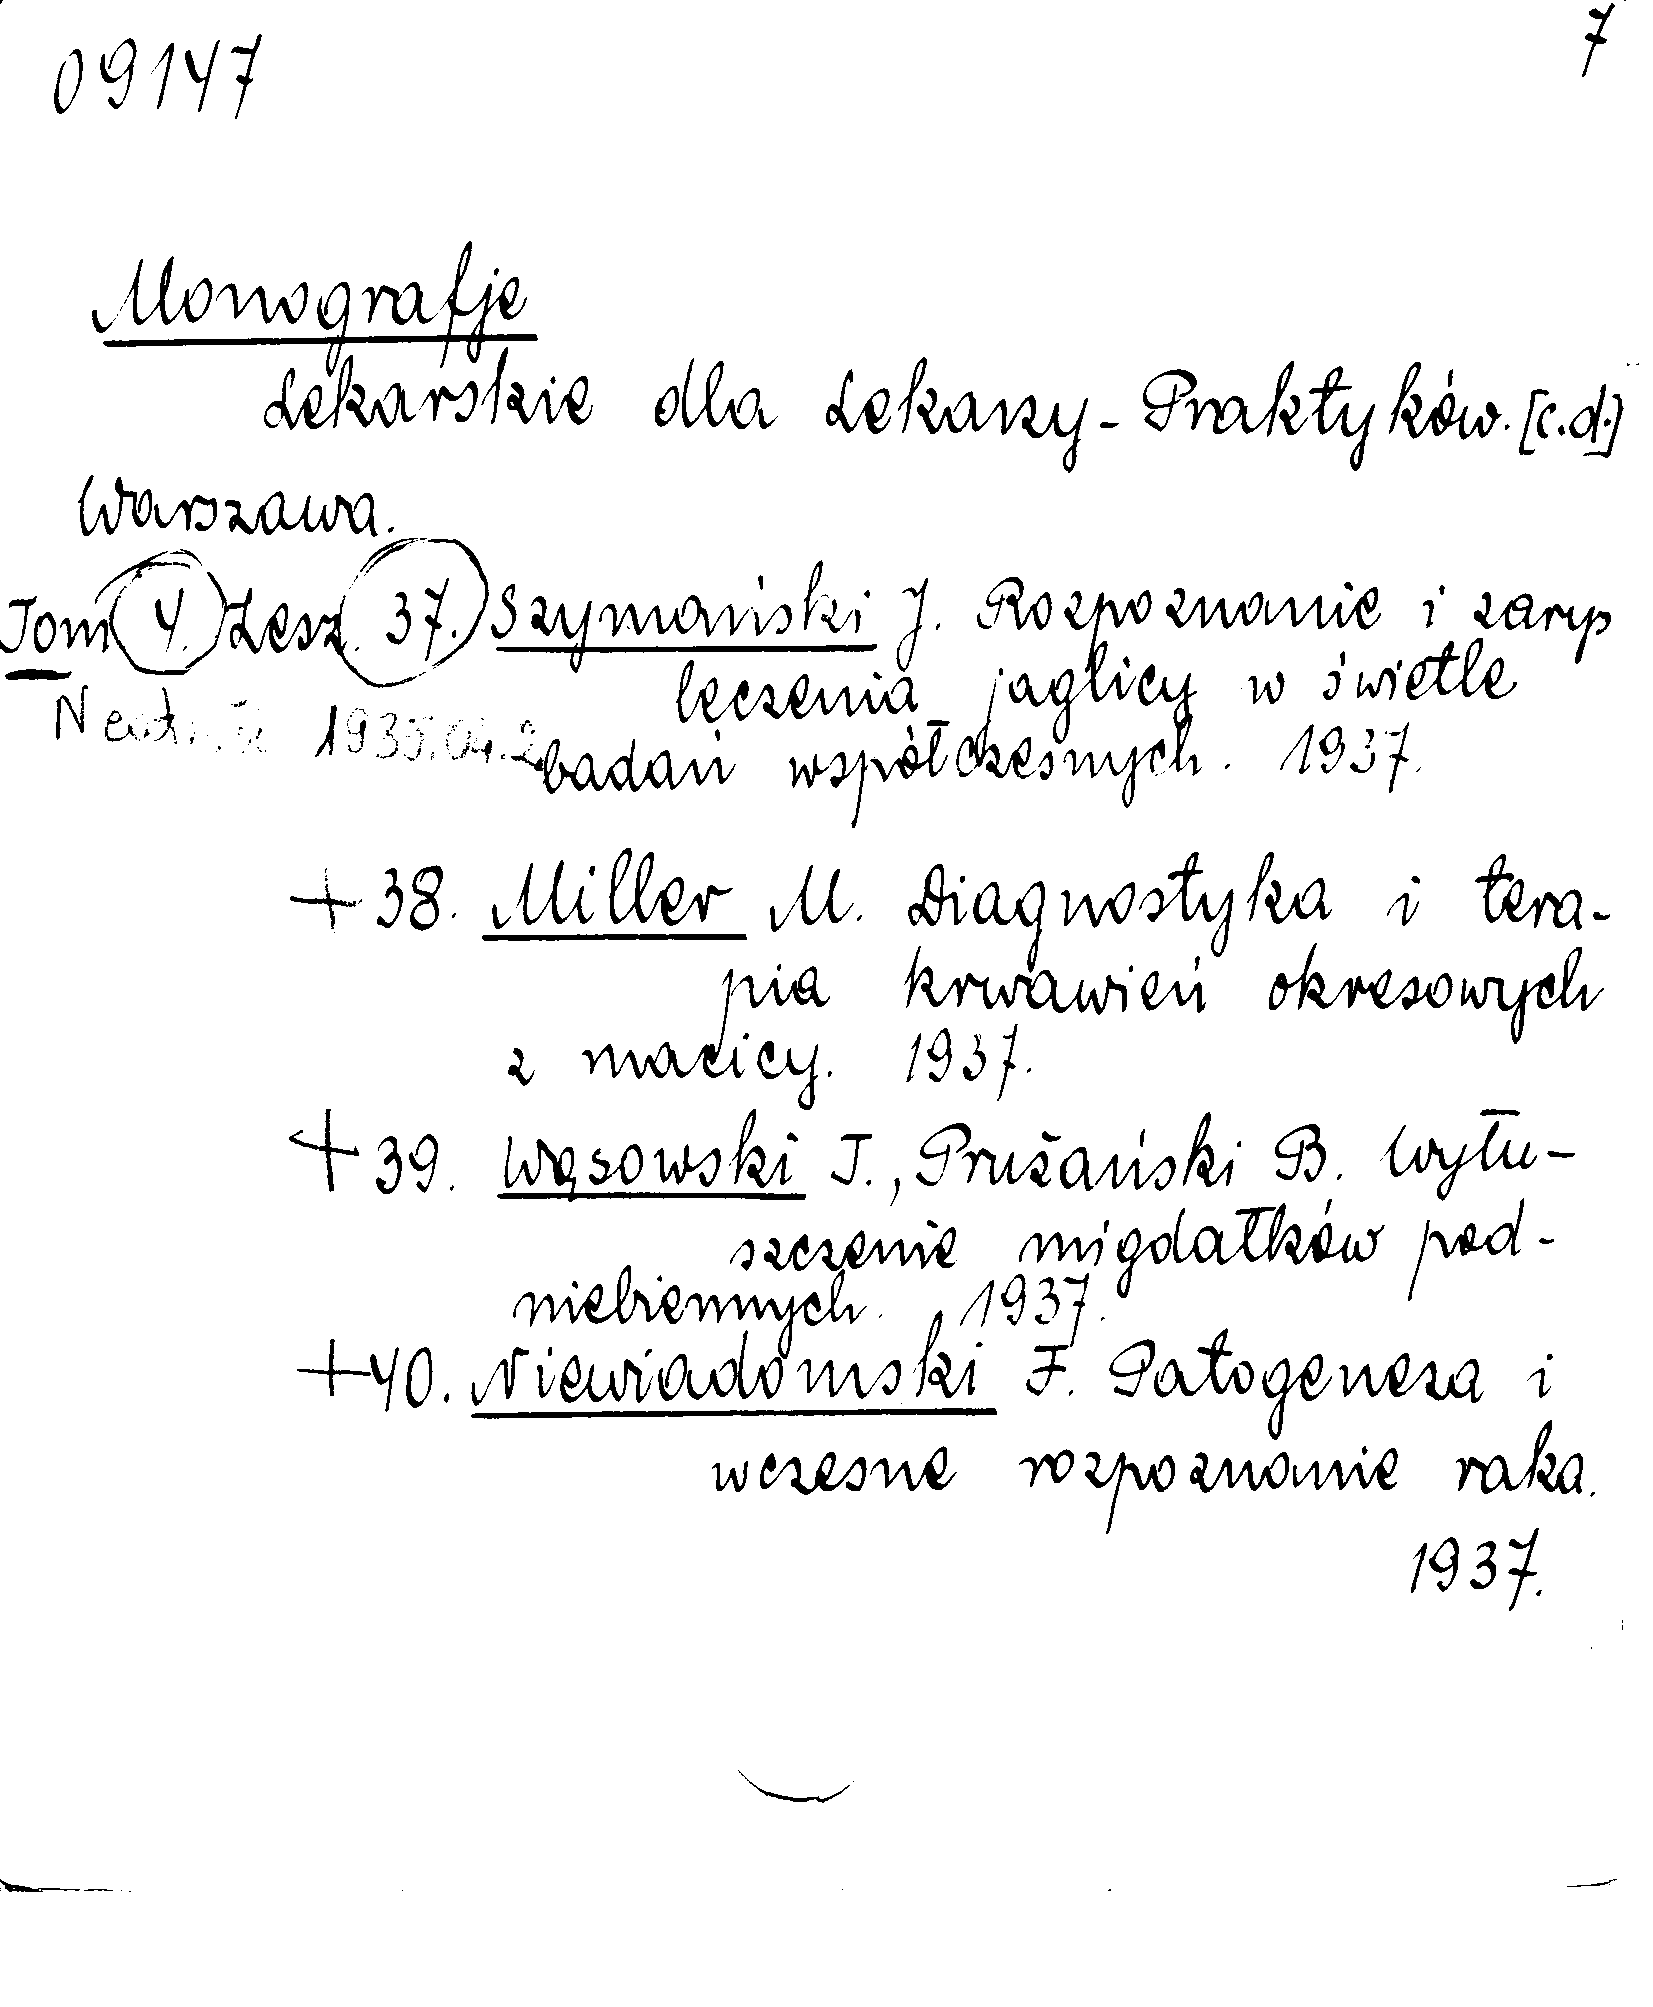 09147
7
Monografje
Lekarskie dla Lekarzy-Praktyków. [c.d.]
Warszawa.
Tom 4. Zesz. 37. Szymański J. Rozpoznanie i zarys
leczenia jaglicy w świetle
1935.04.2
badań współczesnych. 1937.
+ 38. Miller M. Diagnostyka i tera-
pia krwawień okresowych
z macicy. 1937.
+ 39. Wąsowski T., Prużański B. Wyłu-
szczenie migdałków pod-
niebiennych. 1937.
+ 40. Niewiadomski F. Patogeneza i
wczesne rozpoznanie raka.
1937.